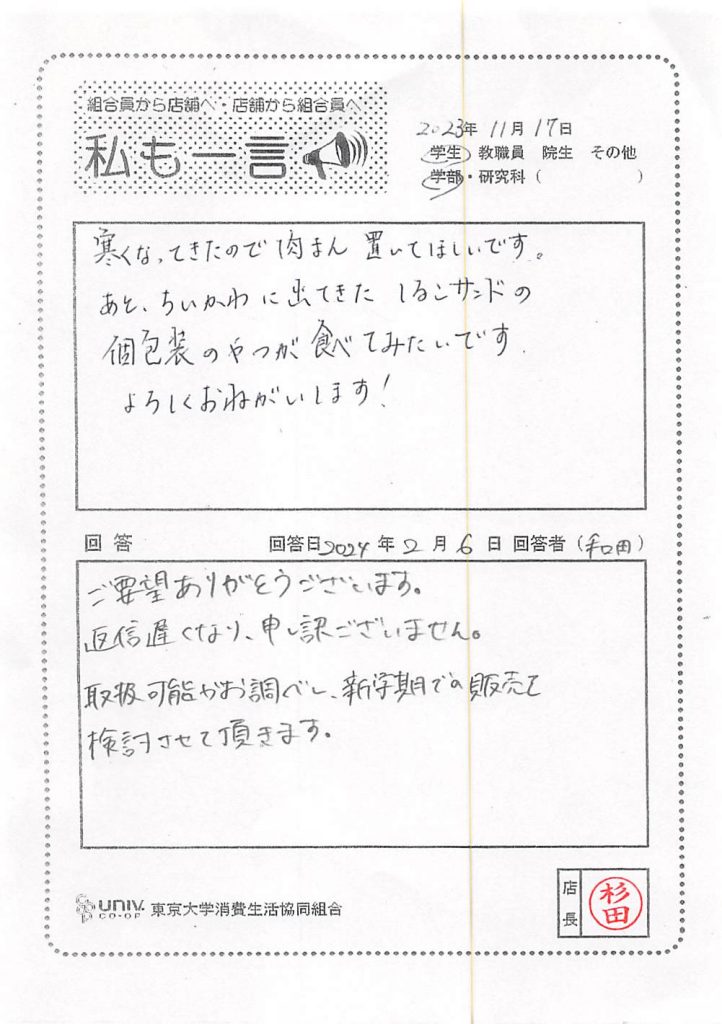 組合員から店舗へ・店舗から組合員へ
私も一言
2023年 11月 17日
学生 教職員 院生 その他
学部・研究科( )
寒くなってきたので 肉まん 置いてほしいです。
あと、ちいかわ に 出てきた しるこサンドの
個包装 の やつが 食べてみたいです
よろしくおねがいします!
回 答
回答日 2024 年 2 月 6 日 回答者(和田)
ご要望ありがとうございます。
返信遅くなり、申し訳ございません。
取扱可能かお調べし、新学期での販売を
検討させて頂きます。
UNIV. CO-OP 東京大学消費生活協同組合
店長
杉田